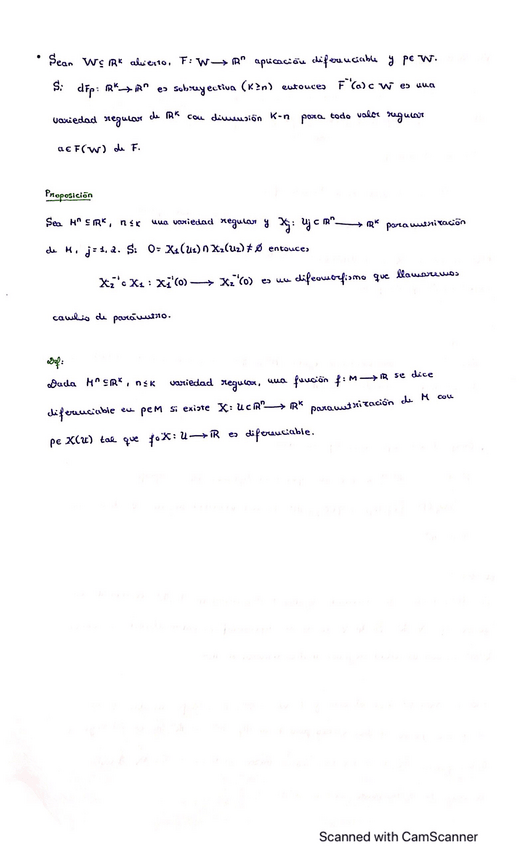 • Sean W ⊆ ℝᵏ abierto, F: W ⟶ ℝⁿ aplicación diferenciable y p∈W.
Si dFp: ℝᵏ→ℝⁿ es sobreyectiva (K≥n) entonces F⁻¹(a) ⊂ W es una
variedad regular de ℝᵏ con dimensión K-n para todo valor regular
a∈F(W) de F.
Proposición
Sea Mⁿ ⊆ ℝᵏ, n≤k una variedad regular y Xj: Uj ⊂ ℝⁿ ⟶ ℝᵏ parametrización
de M, j=1,2. Si O= X₁(U₁)∩X₂(U₂)≠∅ entonces
X₂⁻¹∘X₁ : X₁⁻¹(O) ⟶ X₂⁻¹(O) es un difeomorfismo que llamaremos
cambio de parámetro.
Def:
Dada Mⁿ⊆ℝᵏ, n≤k variedad regular, una función f: M ⟶ ℝ se dice
diferenciable en p∈M si existe X: U⊂ℝⁿ ⟶ ℝᵏ parametrización de M con
p∈ X(U) tal que f∘X: U ⟶ ℝ es diferenciable.
Scanned with CamScanner